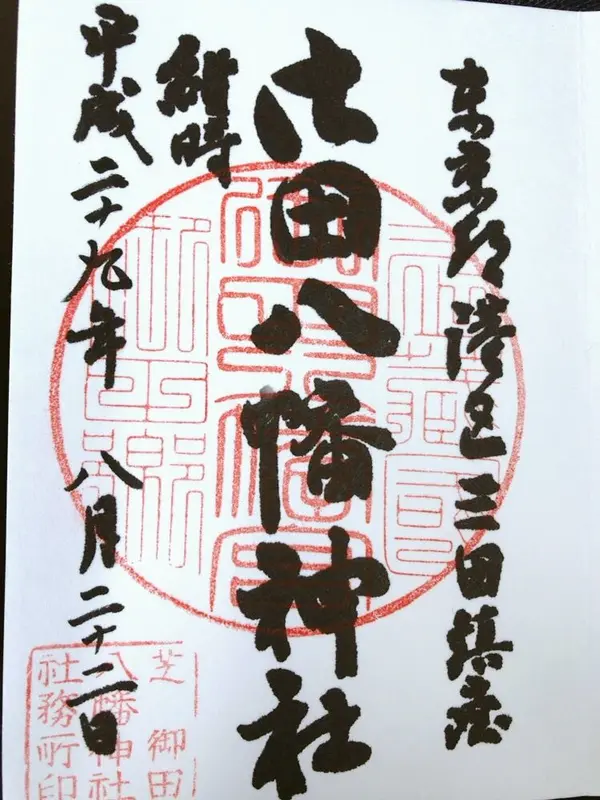 東京都港区三田鎮座
御田八幡神社
維時
平成二十九年 八月二十二日
芝 御田
八幡神社
社務所印